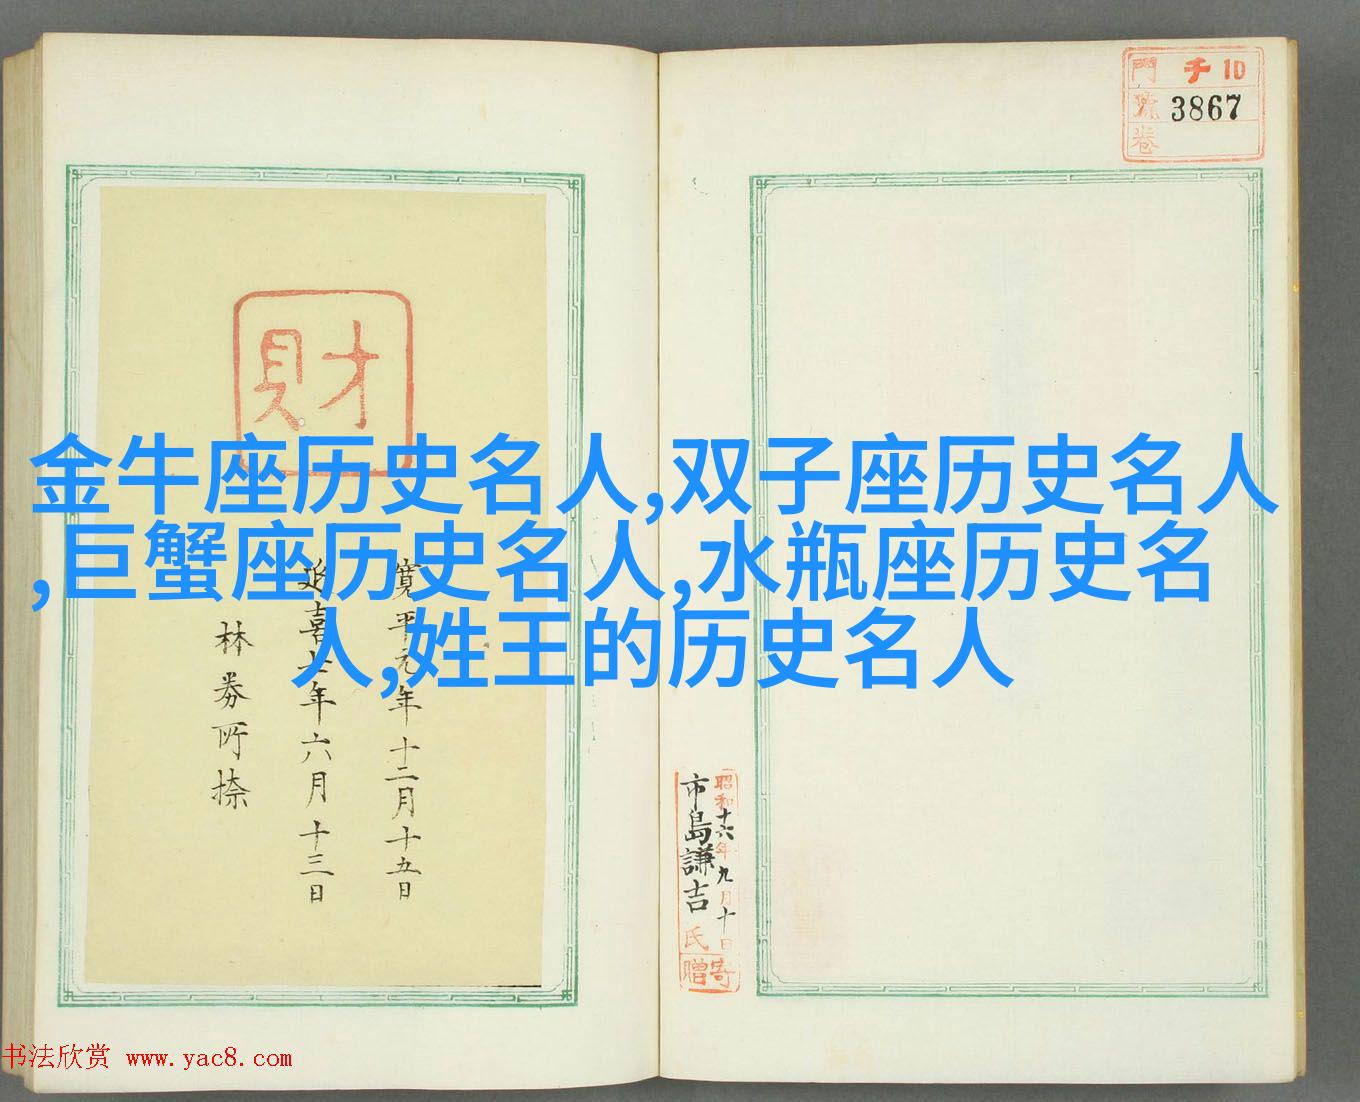 門 チ 10
號 3867
卷
財
金牛座历史名人,双子座历史名人
,巨蟹座历史名人,水瓶座历史名
人,姓王的历史名人
寛平元年十二月十五日
延喜七年六月十三日
林券所捺
昭和十六年九月十日
市島謙吉氏
寄贈
书法欣赏 www.yac8.com